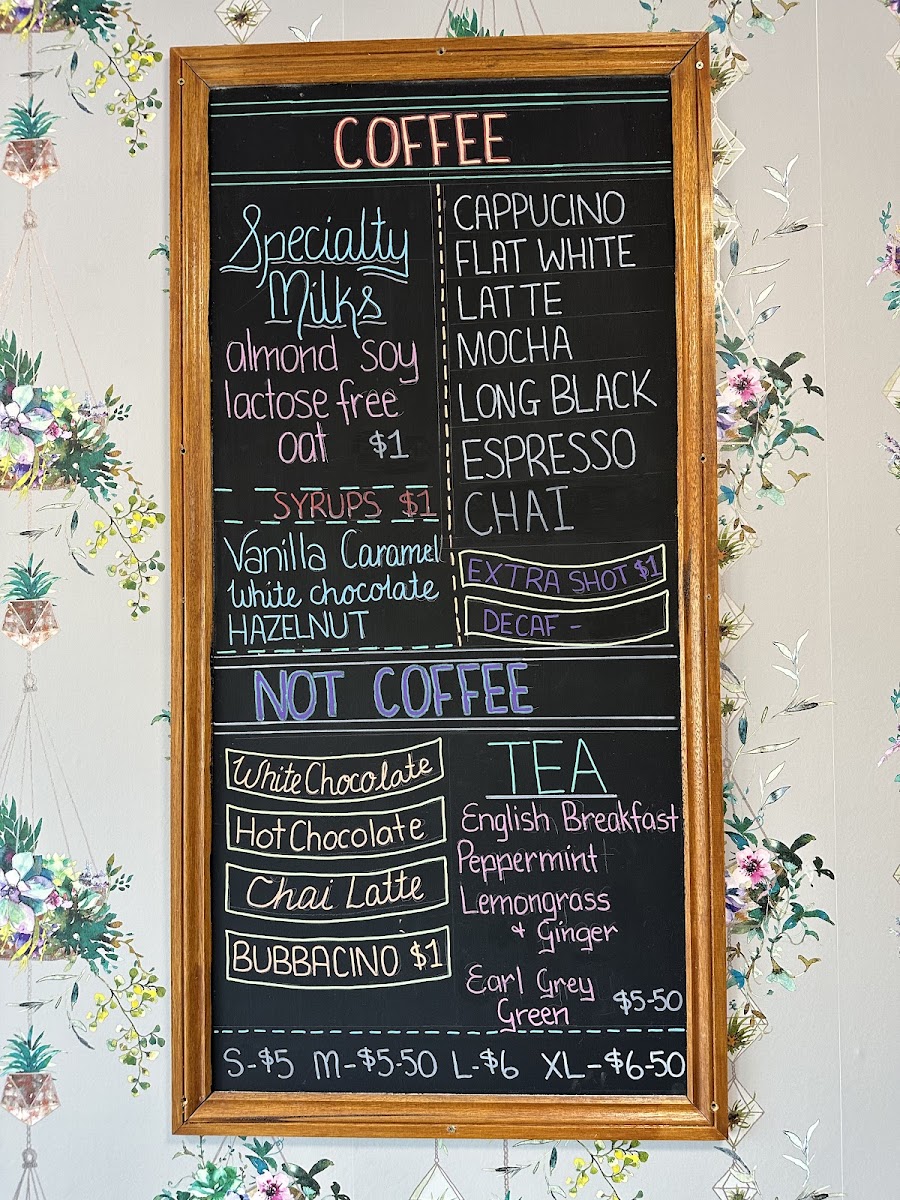 COFFEE
Specialty
Milks
almond soy
lactose free
oat $1
SYRUPS $1
Vanilla Caramel
White chocolate
HAZELNUT
CAPPUCINO
FLAT WHITE
LATTE
MOCHA
LONG BLACK
ESPRESSO
CHAI
EXTRA SHOT $1
DECAF -
NOT COFFEE
White Chocolate
Hot Chocolate
Chai Latte
BUBBACINO $1
TEA
English Breakfast
Peppermint
Lemongrass
+ Ginger
Earl Grey
Green $5-50
S-$5 M-$5-50 L-$6 XL-$6-50